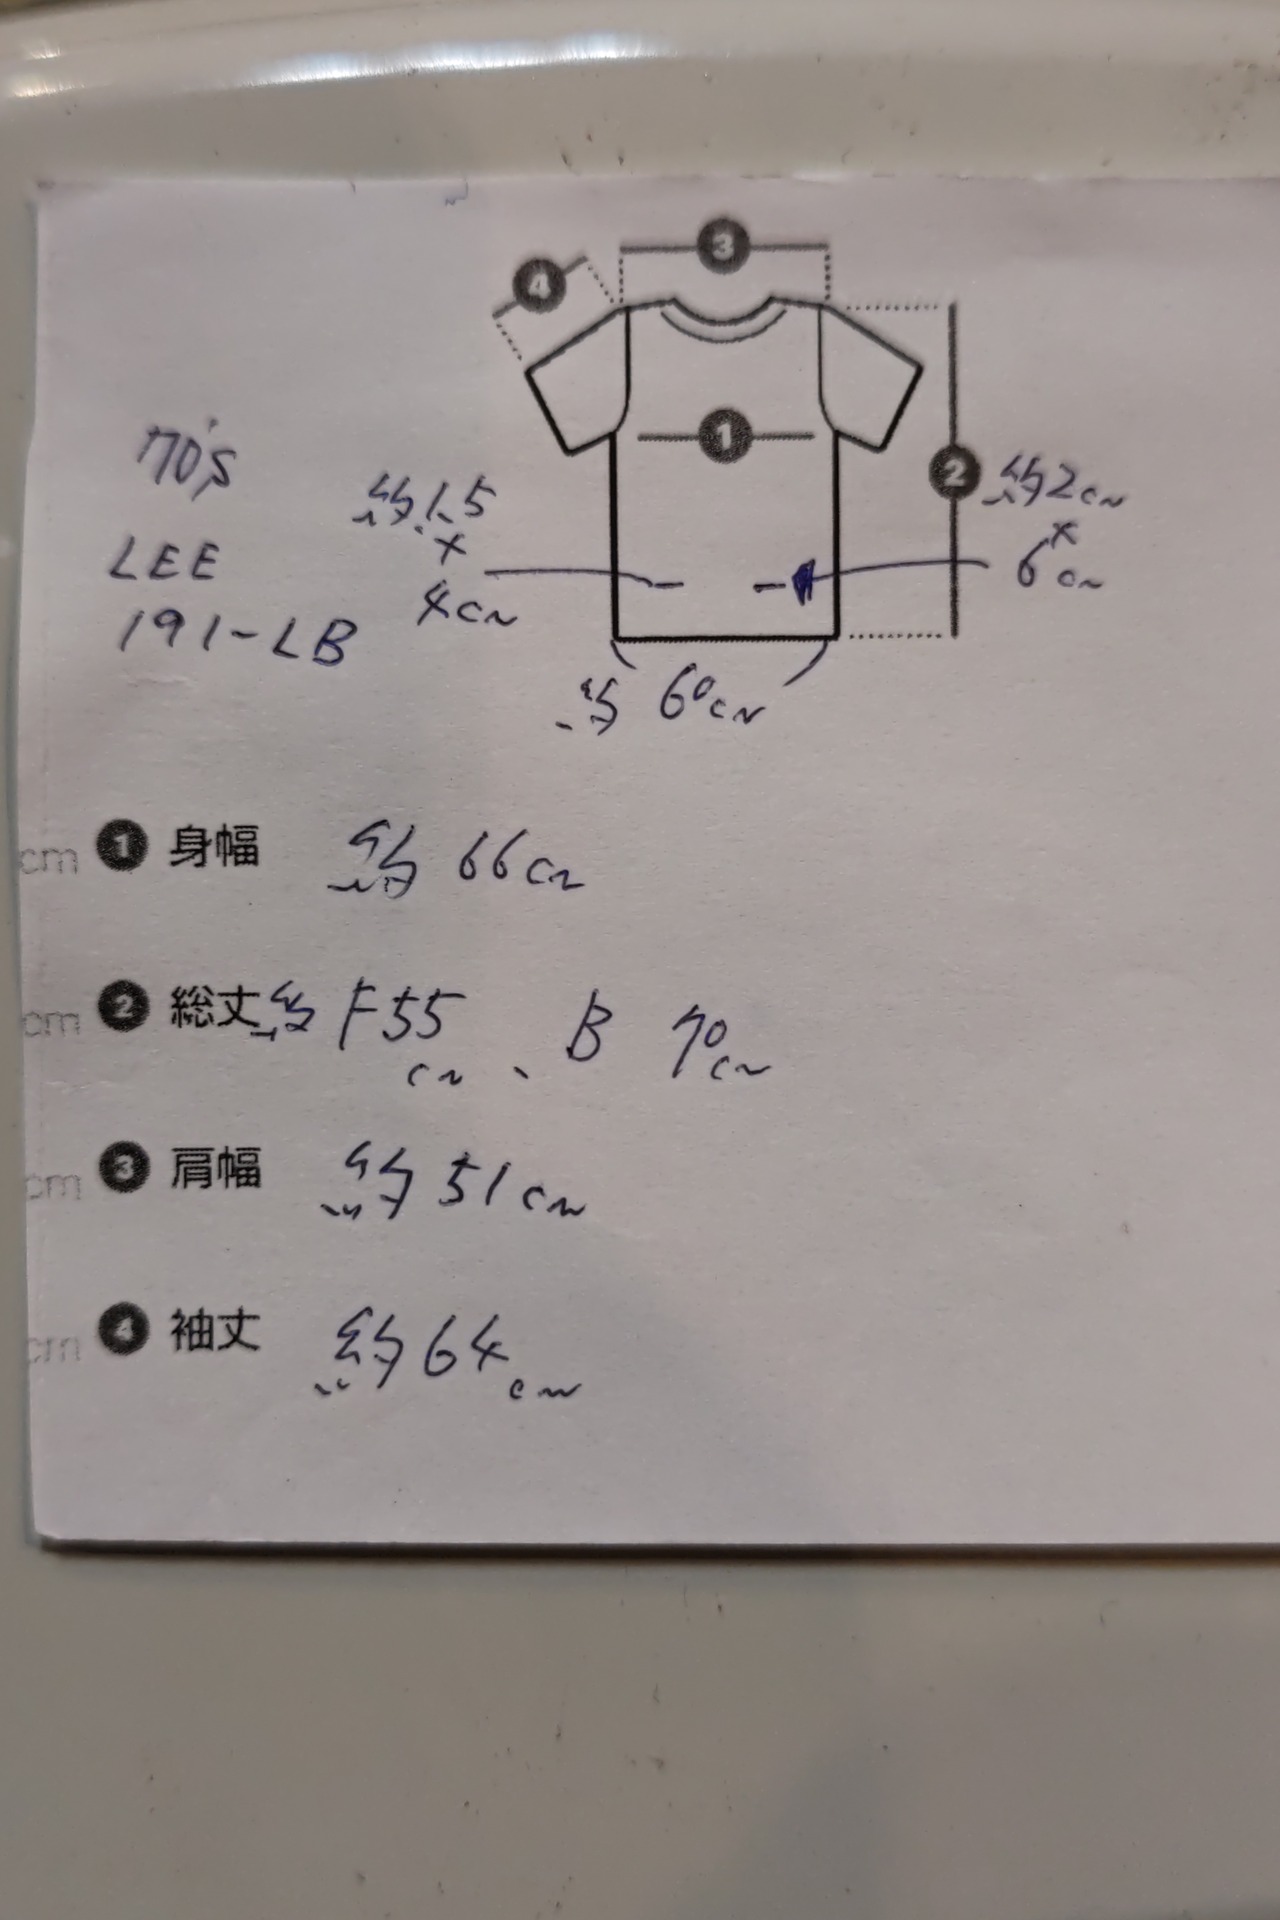 4
3
70's
LEE
191-LB
約1.5
×
4cm
1
2 約2cm
×
6cm
約 60cm
cm 1 身幅 約 66cm
cm 2 総丈 約 F55cm、B 70cm
cm 3 肩幅 約 51cm
cm 4 袖丈 約 64cm